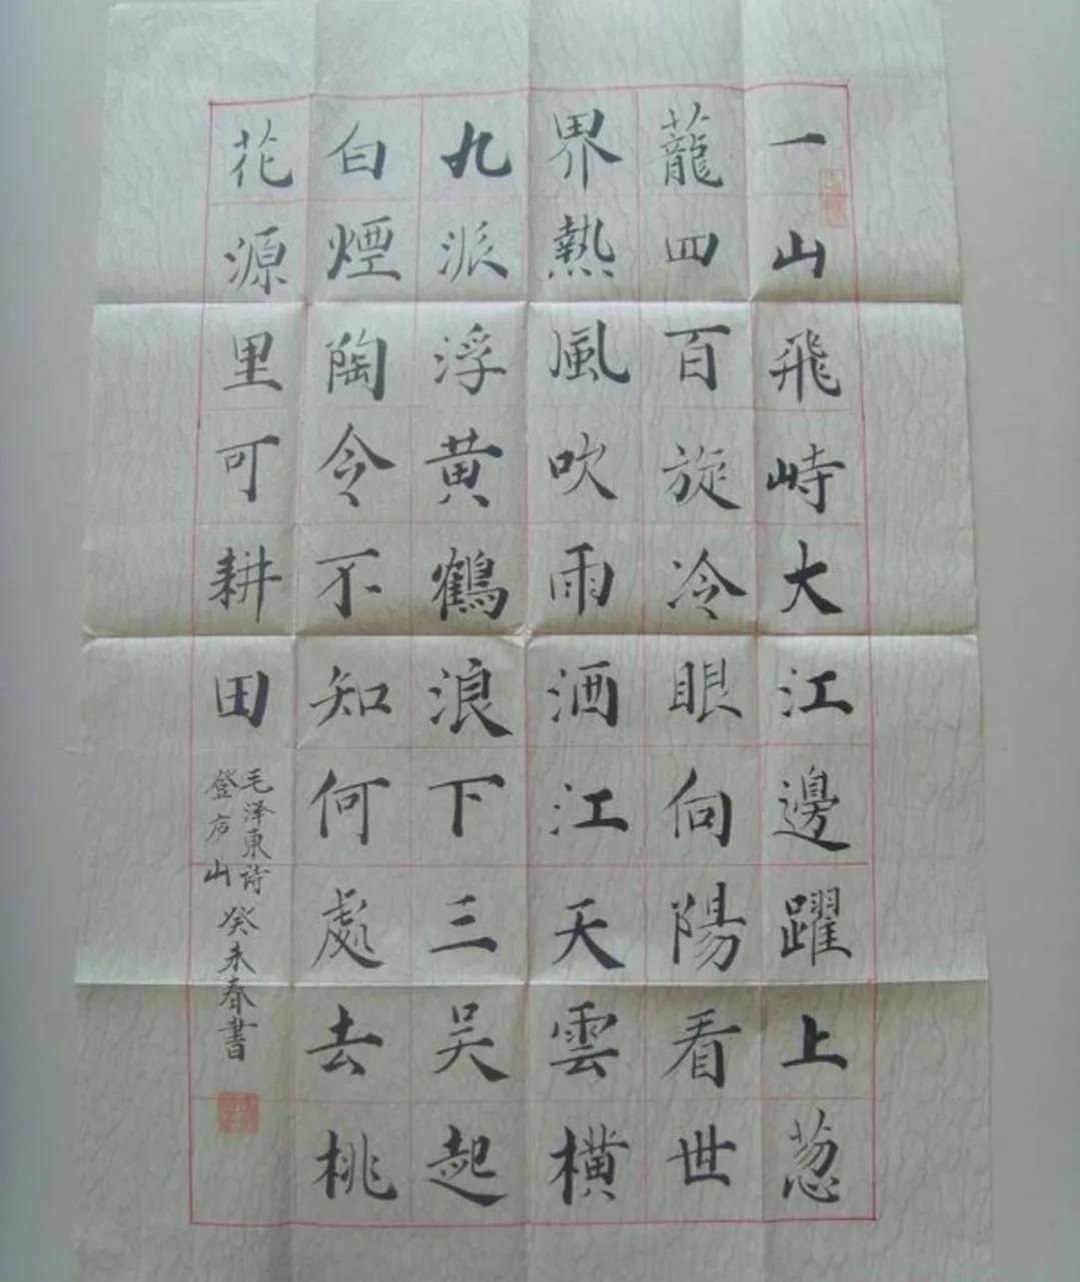 一山飛峙大江邊躍上葱
蘢四百旋冷眼向陽看世
界熱風吹雨洒江天雲橫
九派浮黄鶴浪下三吴起
白煙陶令不知何處去桃
花源里可耕田
毛泽東诗
登庐山
癸未春書